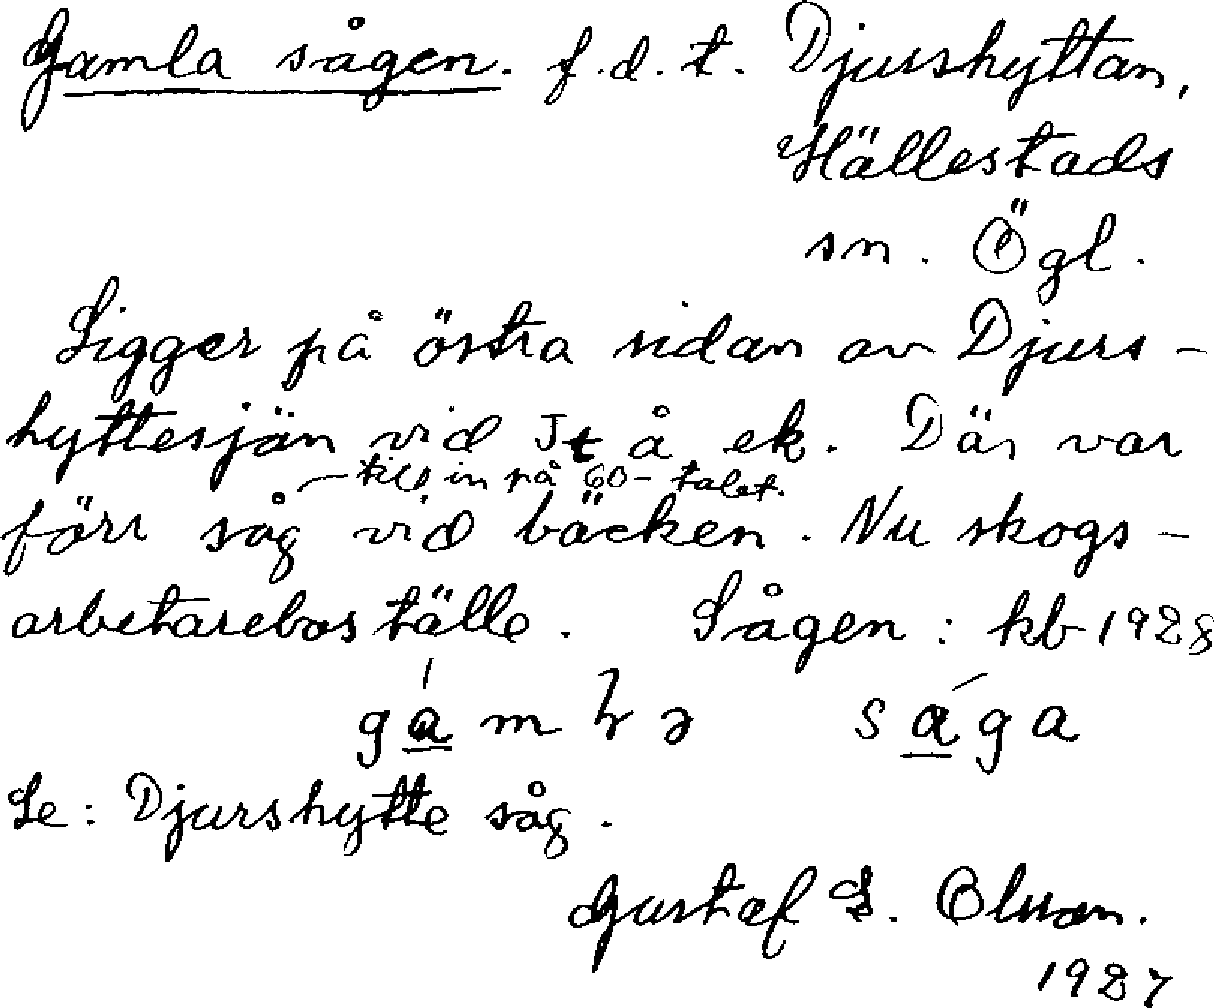 Gamla sågen. f.d.t. Djurshyttan,
Hällestads
sn. Ögl.
Ligger på östra sidan av Djurs-
hyttesjön vid å ek. Där var
till in på 60-talet.
förr såg vid bäcken. Nu skogs-
arbetareboställe. Sågen: kb 1928
gáma̱ sága
Se: Djurshytte såg.
Gustaf E. Olsson.
1927